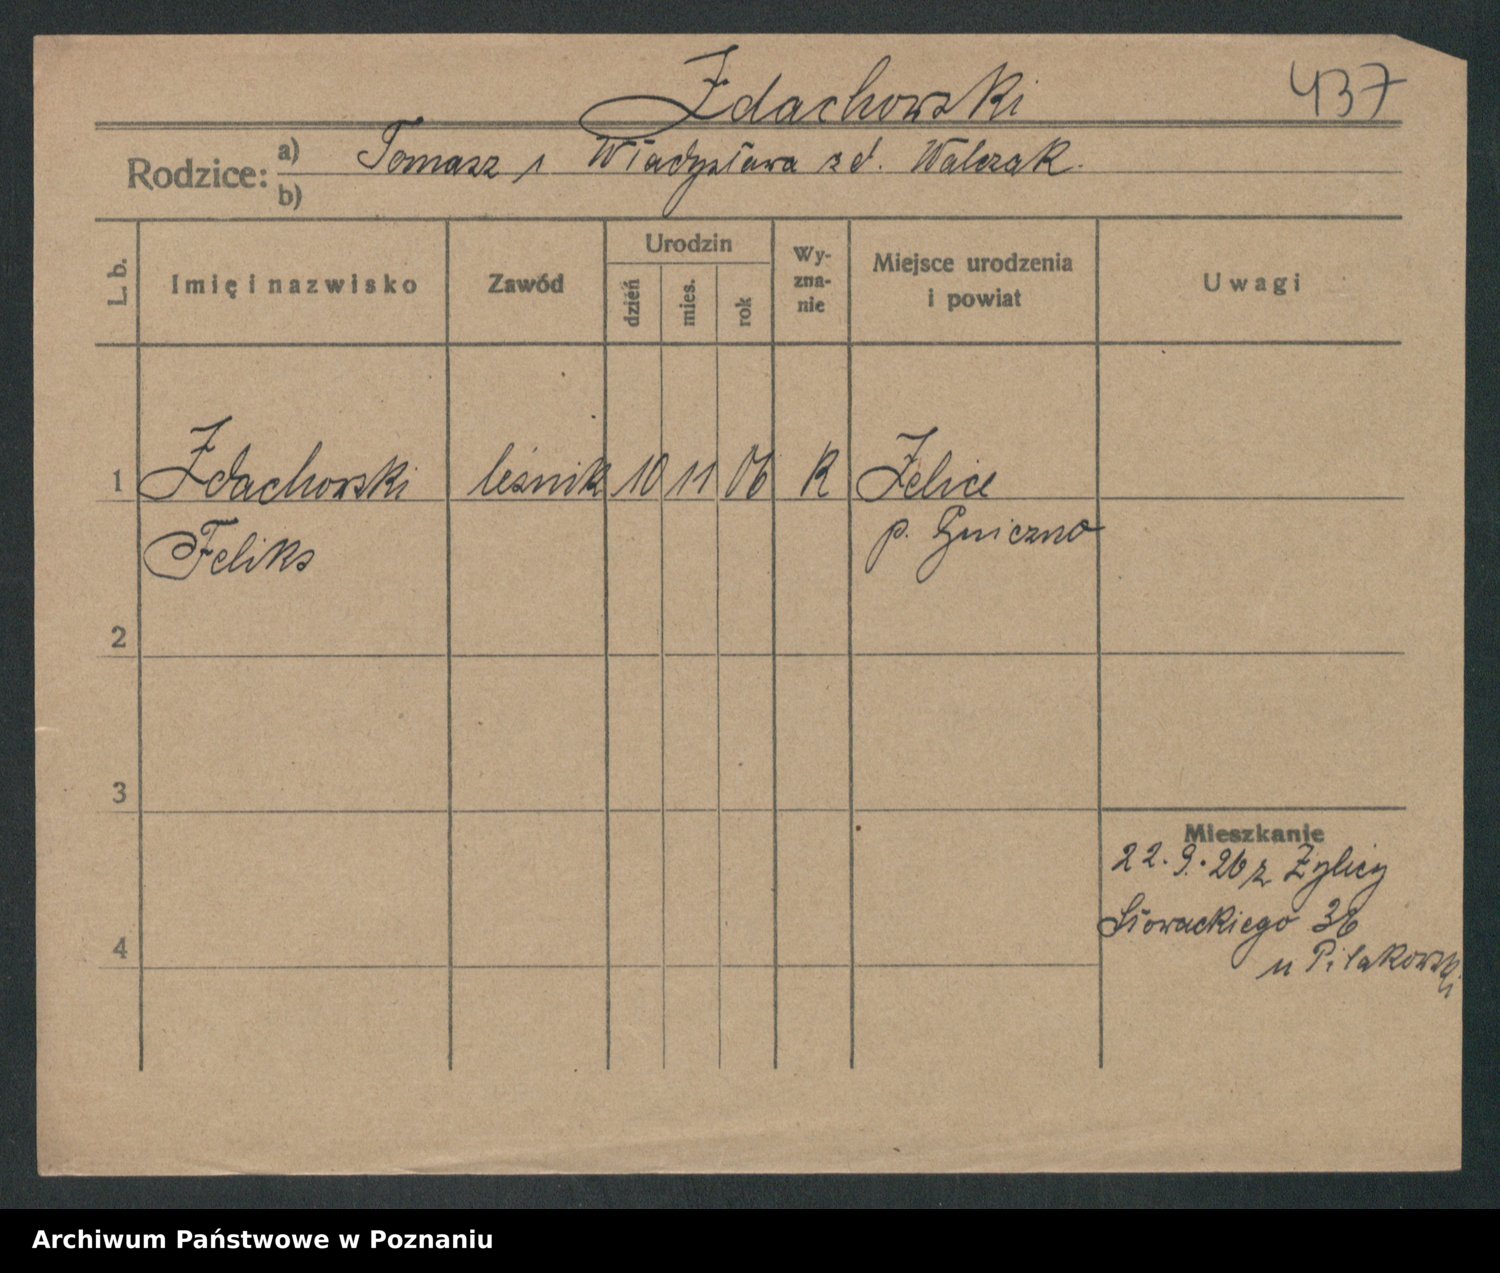 Zdachowski
437
Rodzice: a) Tomasz i Władysława z d. Walczak.
b)
L. b. Imię i nazwisko Zawód Urodzin dzień mies. rok Wyznanie Miejsce urodzenia i powiat Uwagi
1 Zdachowski leśnik 10 11 06 R Zelice
Feliks p. Gniezno
2
3
Mieszkanie
22.9.26 z Żylicy
Słowackiego 36
4
u Pilakowski
Archiwum Państwowe w Poznaniu